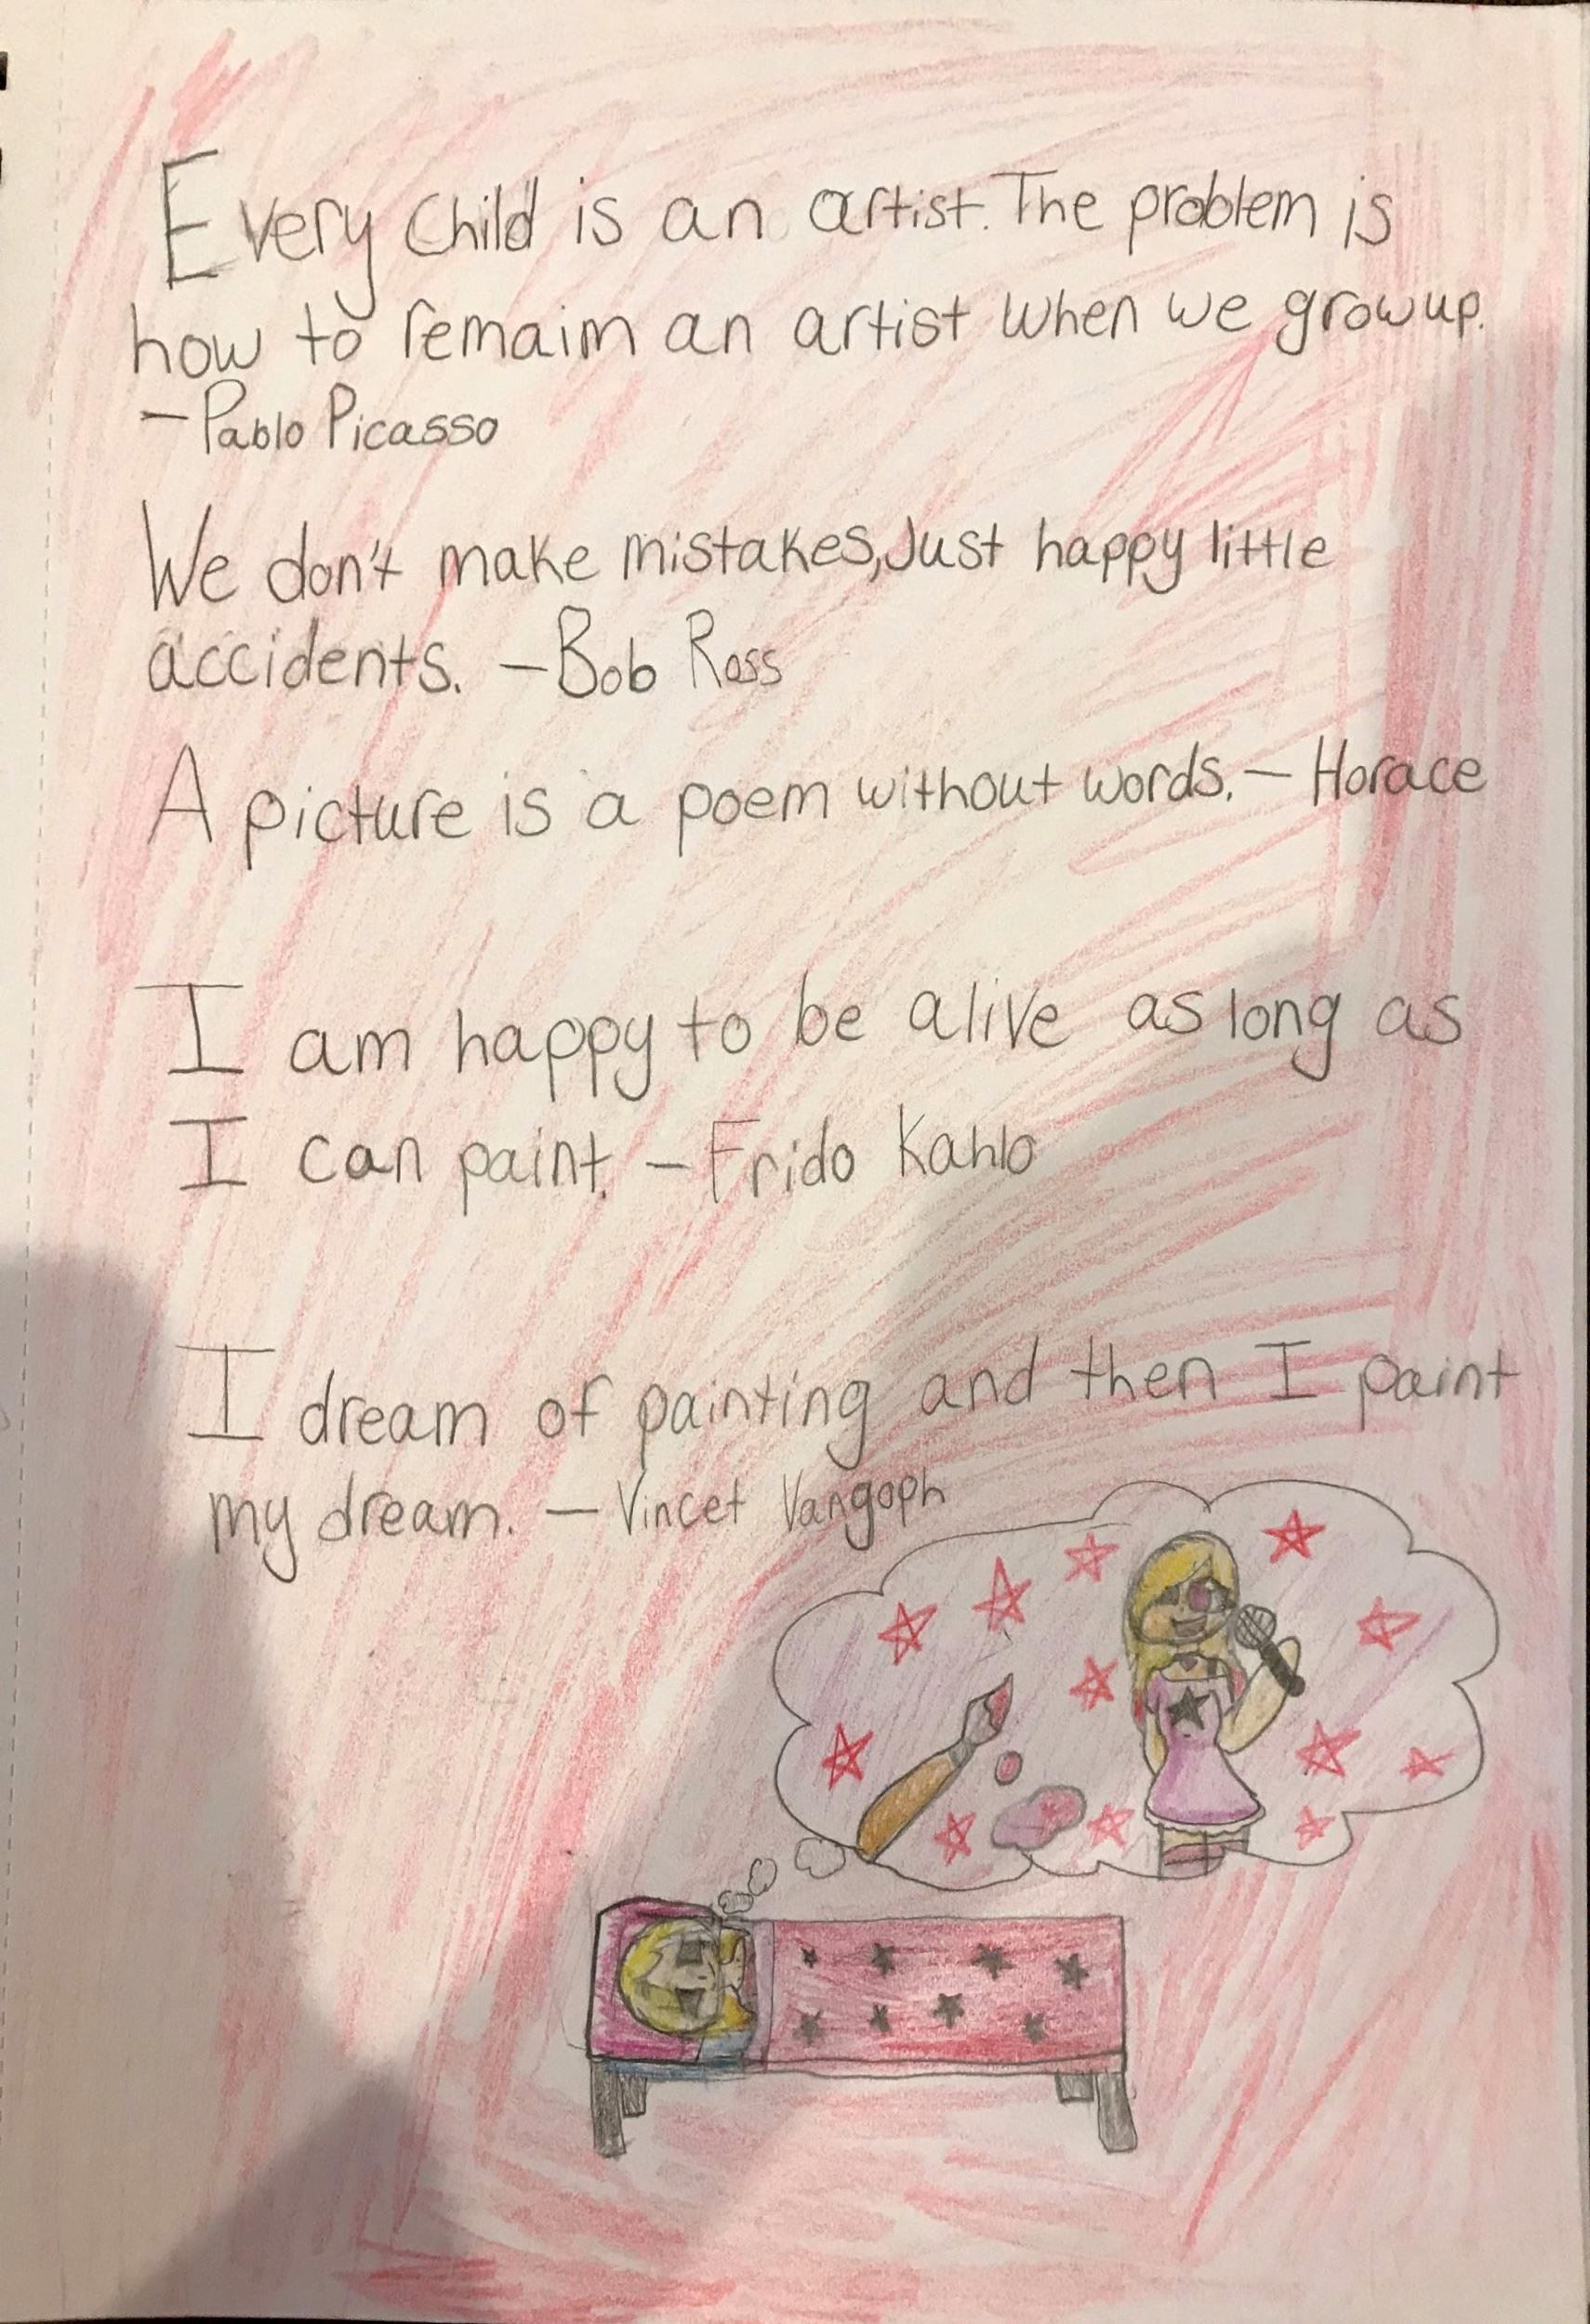 Every child is an artist. The problem is
how to remaim an artist when we grow up.
— Pablo Picasso
We don't make mistakes, Just happy little
accidents. — Bob Ross
A picture is a poem without words. — Horace
I am happy to be alive as long as
I can paint. — Frido Kahlo
I dream of painting and then I paint
my dream. — Vincet Vangoph